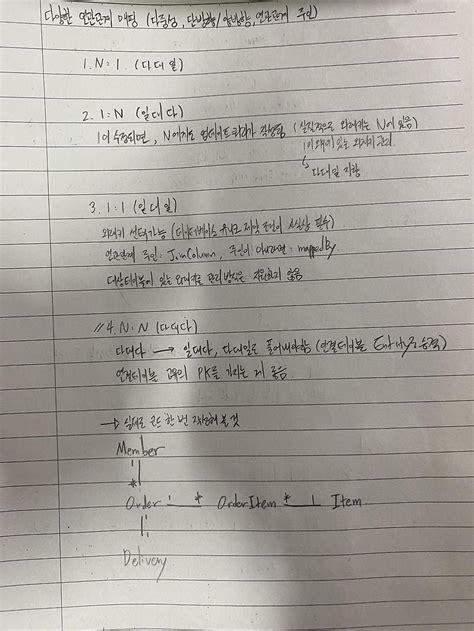 다양한 연관관계 매핑 (다중성, 단방향/양방향, 연관관계 주인)
1. N:1 (다대일)
2. 1:N (일대다)
1이 수정되면, N에게도 업데이트 쿼리가 작성됨 (실질적으로 외래키는 N에 있음)
다대일 지향
3. 1:1 (일대일)
외래키 선택가능 (데이터베이스 유니크 제약 조건이 사실상 필수)
연관관계 주인: JoinColumn, 주인이 아니라면: mappedBy
대상테이블에 있는 외래키를 관리방식은 지원하지 않음
// 4. N:N (다대다)
다대다 → 일대다, 다대일로 풀어내야함 (연결테이블 Entity로 승격)
연결테이블 고유의 PK를 가지는 게 좋음
→ 실제로 코드 한 번 작성해볼 것
Member
1
*
Order 1 * OrderItem * 1 Item
1
1
Delivery